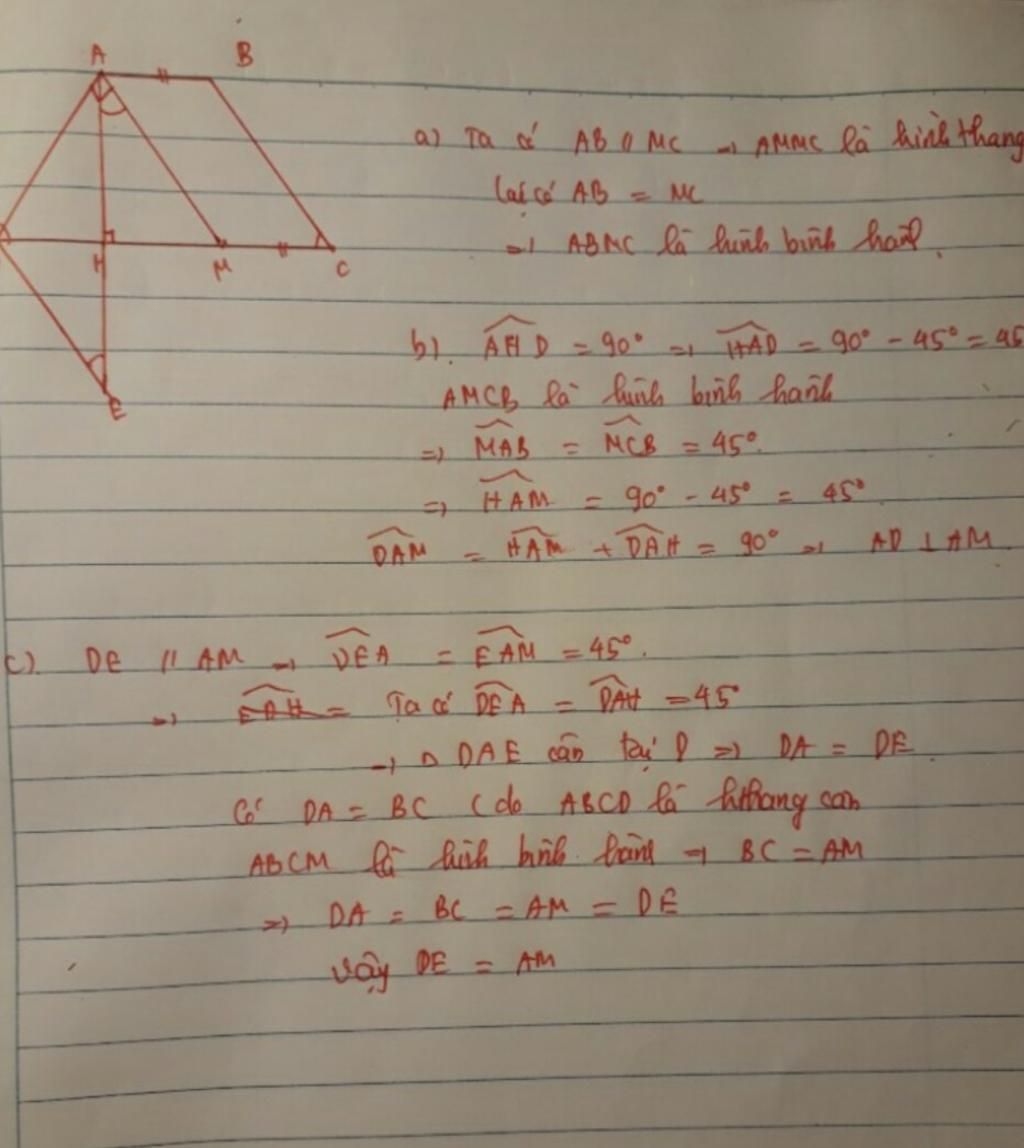 A B
H M C
E
a) Ta có AB // MC → AMMC là hình thang
lại có AB = MC
=> ABMC là hình bình hành.
b). AHD = 90° => HAD = 90° - 45° = 45
AMCB là hình bình hành
=> MAB = MCB = 45°.
=> HAM = 90° - 45° = 45°
DAM = HAM + DAH = 90° => AD ⊥ AM
c). DE // AM → DEA = EAM = 45°.
=> EAH = Ta có DEA = DAH = 45°
→ △ DAE cân tại D => DA = DE
Có DA = BC (do ABCD là hthang cân
ABCM là hình bình hành → BC = AM
=> DA = BC = AM = DE
Vậy DE = AM